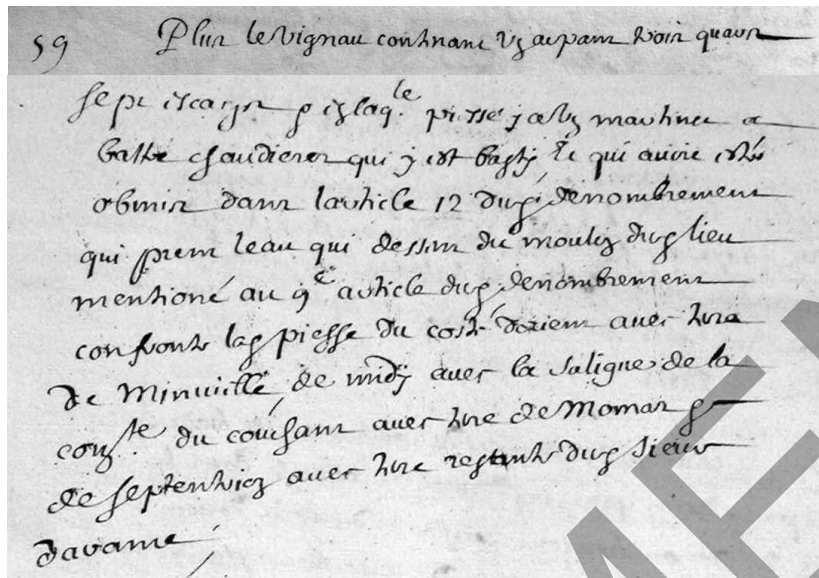 59 Plus le vignau contenant vj arpans trois quars
sept escars p en laq.le piesse j a ung martinet a
battre chaudieres qui y est basty et qui avoit esté
obmis dans larticle 12 dup.t denombrement
qui prent leau qui dessen du moulin dud lieu
mentioné au 9e article dup denombrement
confronte lad piesse du costé dorient avec terre
de Minvielle, de midy avec la saligue de la
comte du couchant avec terre de Momas p
de septentrion avec terre restante dud sieur
davance
MEN